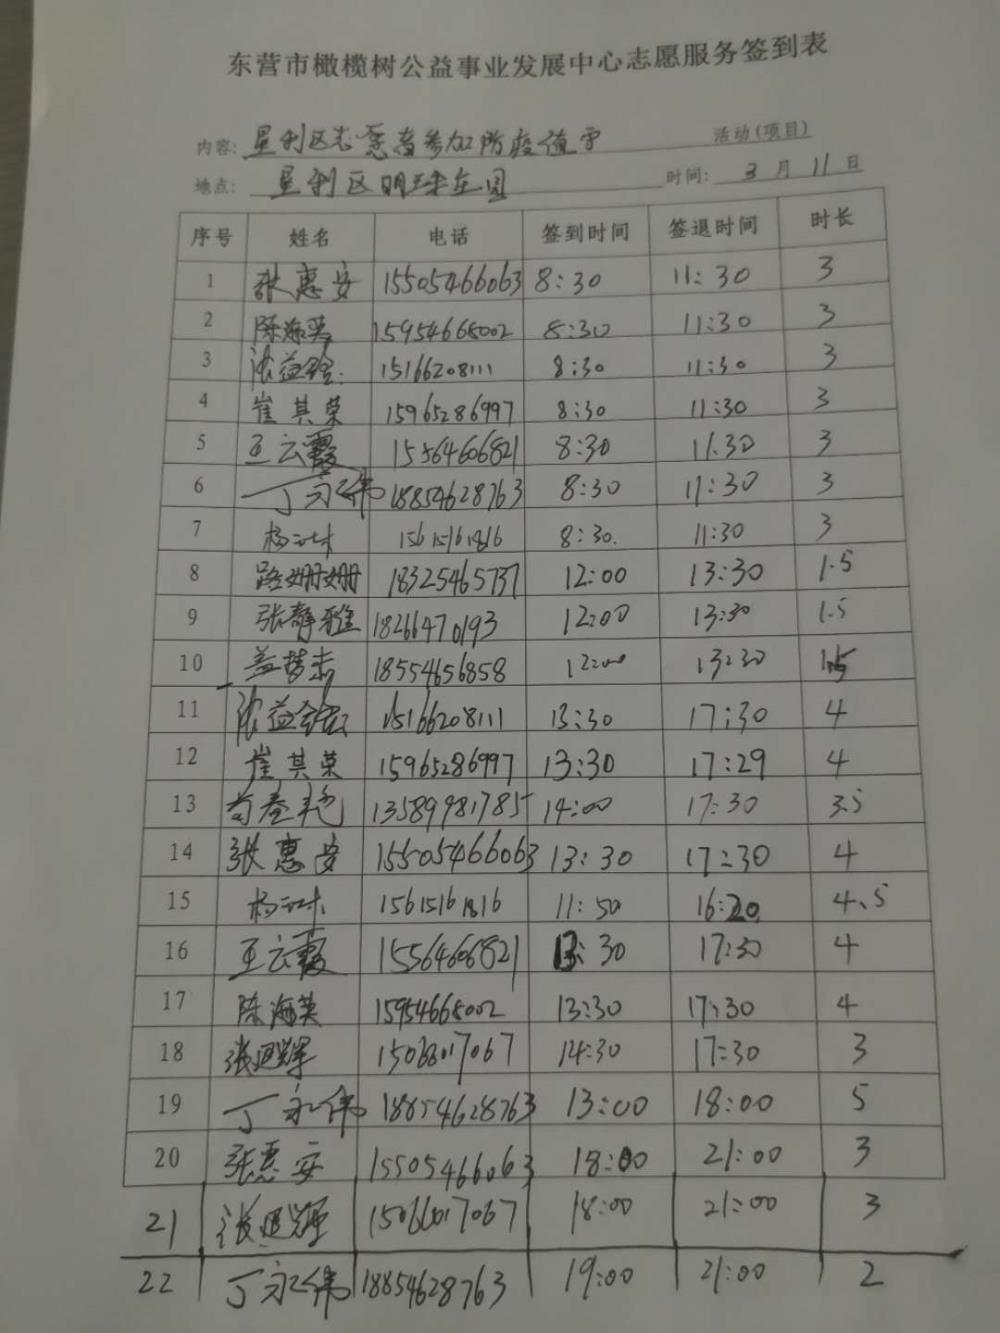 东营市橄榄树公益事业发展中心志愿服务签到表
内容: 垦利区志愿者参加防疫值守 活动(项目)
地点: 垦利区明珠花园 时间: 3 月 11 日
序号 姓名 电话 签到时间 签退时间 时长
1 张惠安 15505466063 8:30 11:30 3
2 陈海英 15954668002 8:30 11:30 3
3 15166208111 8:30 11:30 3
4 崔其荣 15965286997 8:30 11:30 3
5 王云霞 15564606821 8:30 11.30 3
6 丁永伟 18854628763 8:30 11:30 3
7 15615161816 8:30. 11:30 3
8 路姗姗 18325465737 12:00 13:30 1.5
9 张静雅 18266470193 12:00 13:30 1.5
10 18554656858 12:00 13:30 1.5
11 15166208111 13:30 17:30 4
12 崔其荣 15965286997 13:30 17:29 4
13 13589981785 14:00 17:30 3.5
14 张惠安 15505466063 13:30 17:30 4
15 15615161816 11:50 16:20 4、5
16 王云霞 15564606821 13:30 17:30 4
17 陈海英 15954668002 13:30 17:30 4
18 14:30 17:30 3
19 丁永伟 18854628763 13:00 18:00 5
20 张惠安 15505466063 18:00 21:00 3
21 18:00 21:00 3
22 丁永伟 18854628763 19:00 21:00 2